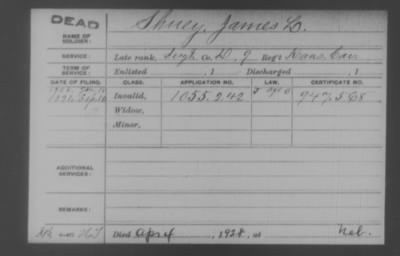 DEAD
NAME OF SOLDIER:
Shuey, James L.
SERVICE:
Late rank, Co. D, 9 Reg't Kans. Cav.
TERM OF SERVICE:
Enlisted , 1 Discharged , 1
DATE OF FILING. CLASS. APPLICATION NO. LAW. CERTIFICATE NO.
Invalid, 1055.242 947.568
Widow,
Minor,
ADDITIONAL SERVICES:
REMARKS:
Died Apr 4, 1928, at Neb.